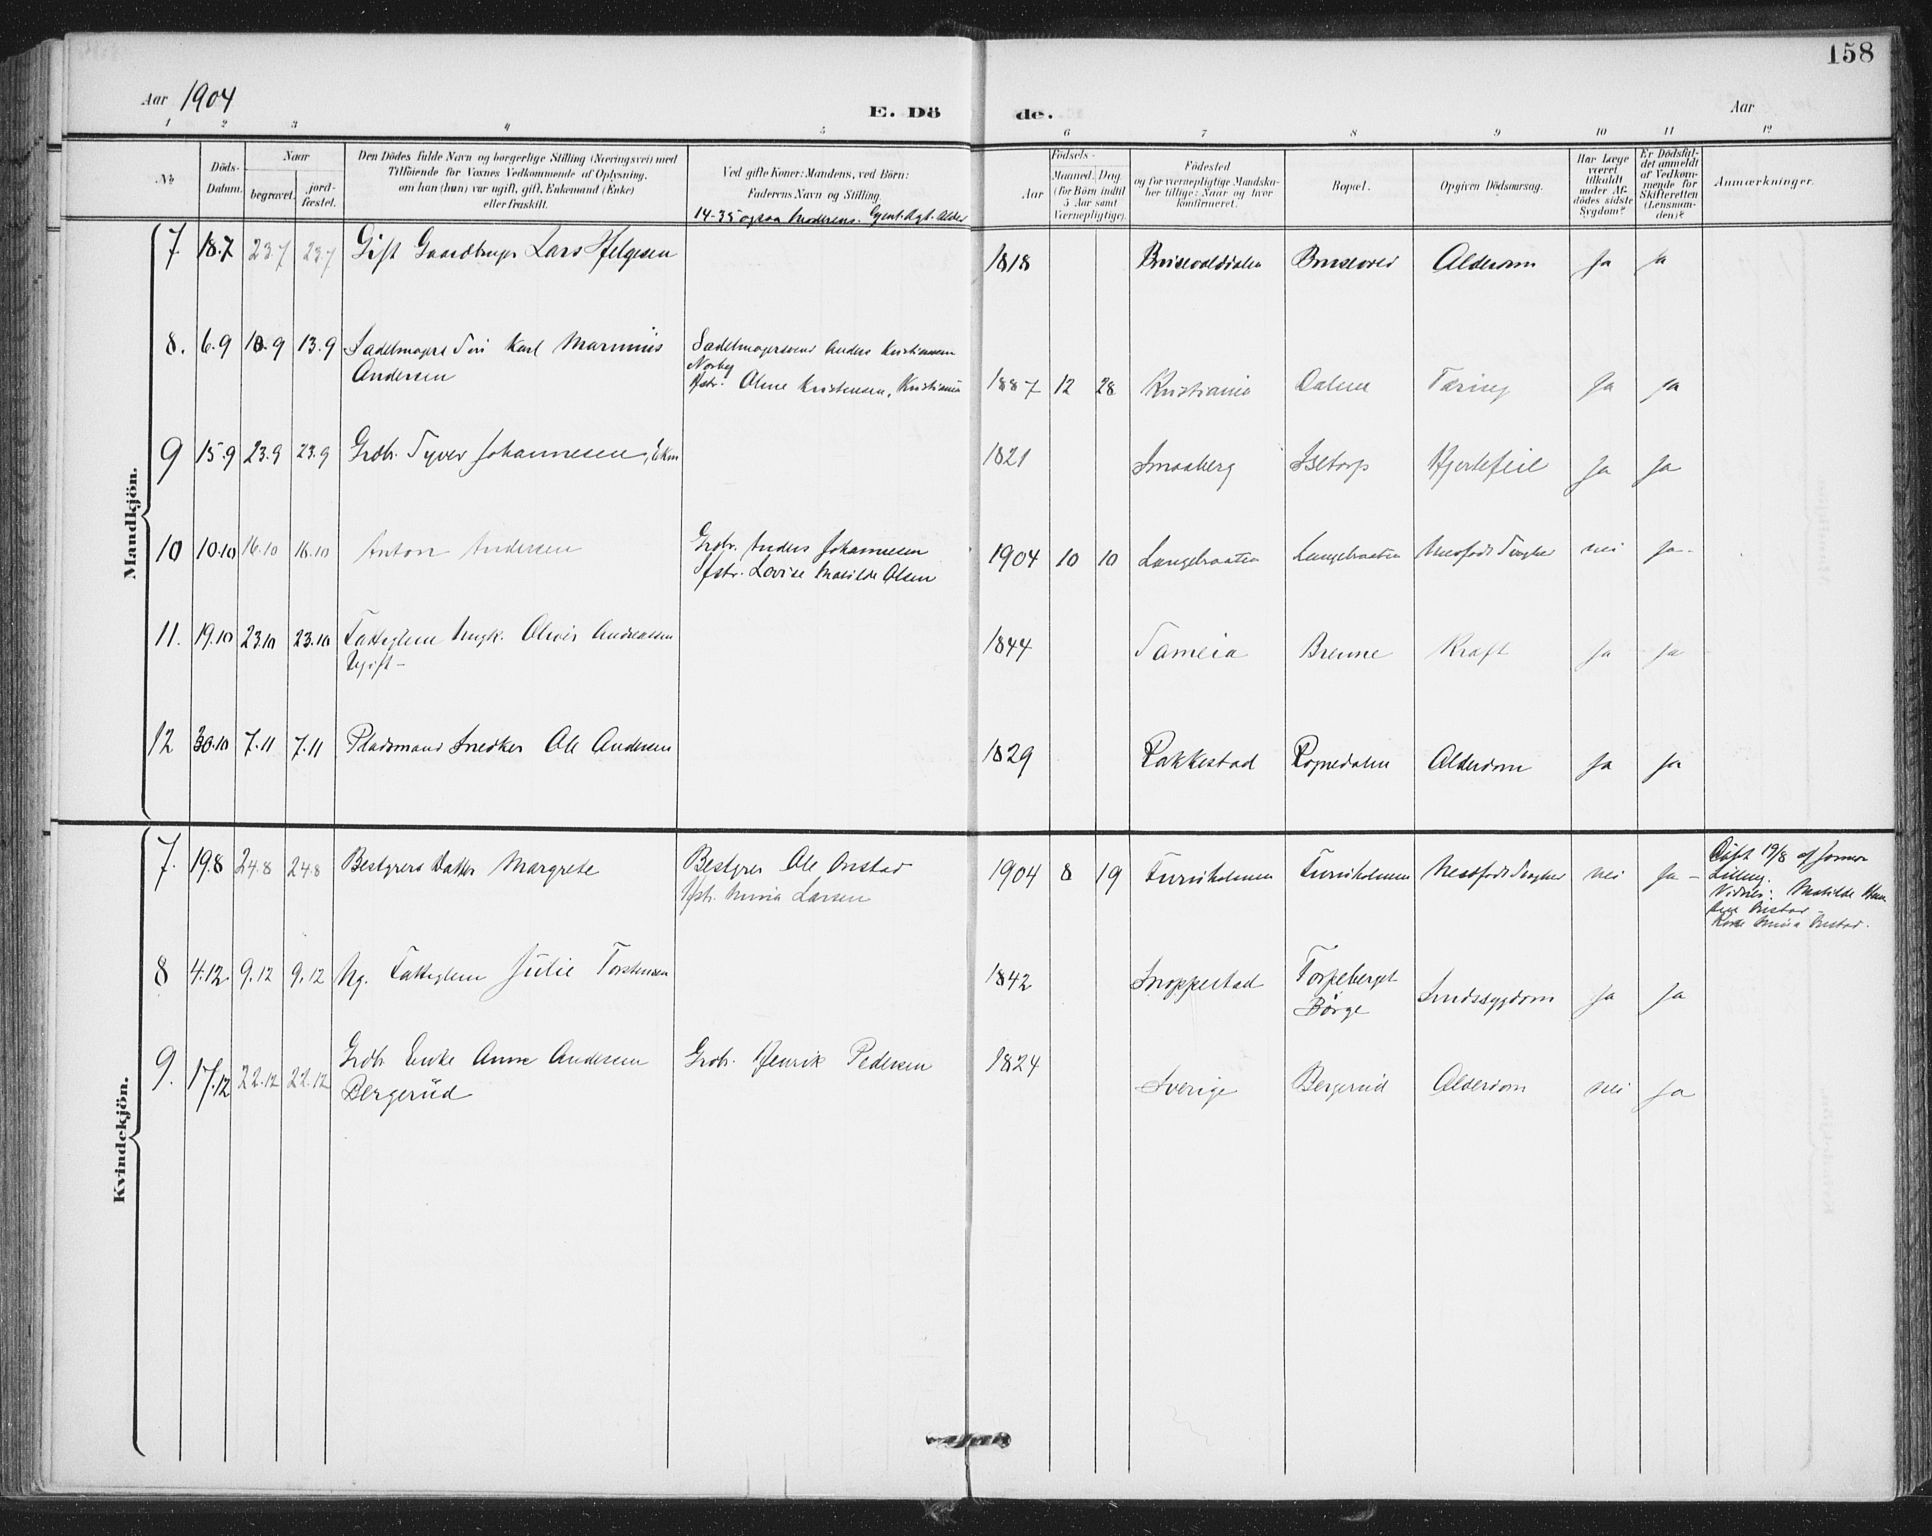 158
Aar 1904
E. Dö de.
Aar
1 2 3 4 5 6 7 8 9 10 11 12
No
Döds-
Datum.
Naar
begravet.
jord-
fæstet.
Den Dödes fulde Navn og borgerlige Stilling (Næringsvei) med
Tilföiende for Voxnes Vedkommende af Oplysning,
om han (hun) var ugift, gift, Enkemand (Enke)
eller fraskilt.
Ved gifte Koner: Mandens, ved Börn:
Faderens Navn og Stilling.
14-35 ogsaa Moderens.
Födsels-
Aar
Maaned. Dag.
(for Börn indtil
5 Aar samt
Værnepligtige).
Födested
og for værnepligtige Mandska-
ber tillige: Naar og hvor
konfirmeret.
Bopæl.
Opgiven Dödsaarsag.
Har Læge
været
tilkaldt
under Af-
dödes sidste
Sygdom?
Er Dödsfal-
det anmeldt
af Vedkom-
mende for
Skifteretten
(Lensman-
den)?
Anmærkninger.
Mandkjön.
7. 18.7 23.7 23.7 Gift Gaardbruger Lars Helgesen 1818 Alderdom Ja Ja
8. 6.9 10.9 13.9 Sadelmagers Søn Karl Marinius
Andersen
Sadelmagersvend Anders Kristiansen
Norby
Hstr. Oline Kristensen, Kristiania
1887 12 28 Kristiania Dalen Tæring Ja Ja
9 15.9 23.9 23.9 Grdbr. Syver Johannesen, Ekm 1821 Smaaberg Isetorp Hjertefeil Ja Ja
10 10.10 16.10 16.10 Anton Andersen
Grdbr. Anders Johannesen
Hstr. Lovise Matilde Olsen
1904 10 10 Langebraaten Langebraaten Ufuldb. nei Ja.
11. 19.10 23.10 23.10 Fattiglem Ungk. Oliver Andreassen
Ugift-
1844 Brenne Kræft Ja Ja
12 30.10 7.11 7.11 Pladsmand Snedker Ole Andersen 1829 Rakkestad Rognedalen Alderdom Ja Ja
Kvindekjön.
7. 19.8 24.8 24.8 Bestyrers Datter Margrete
Bestyrer Ole Onstad
Hstr. Mina Larsen
1904 8 19 Furuholmen Furuholmen nei Ja -
Døbt 19/8 af Jormor
Vidner: Matilde
Onstad
Mina Onstad.
8 4.12 9.12 9.12 Ug. Fattiglem Julie Torstensen 1842 Snoppestad
Torpeberget
Börge
Sindssygdom Ja Ja
9. 17.12 22.12 22.12 Grdbr. Enke Anne Andersen
Bergerud
Grdbr. Henrik Pedersen
1824 Sverige Bergerud Alderdom nei Ja